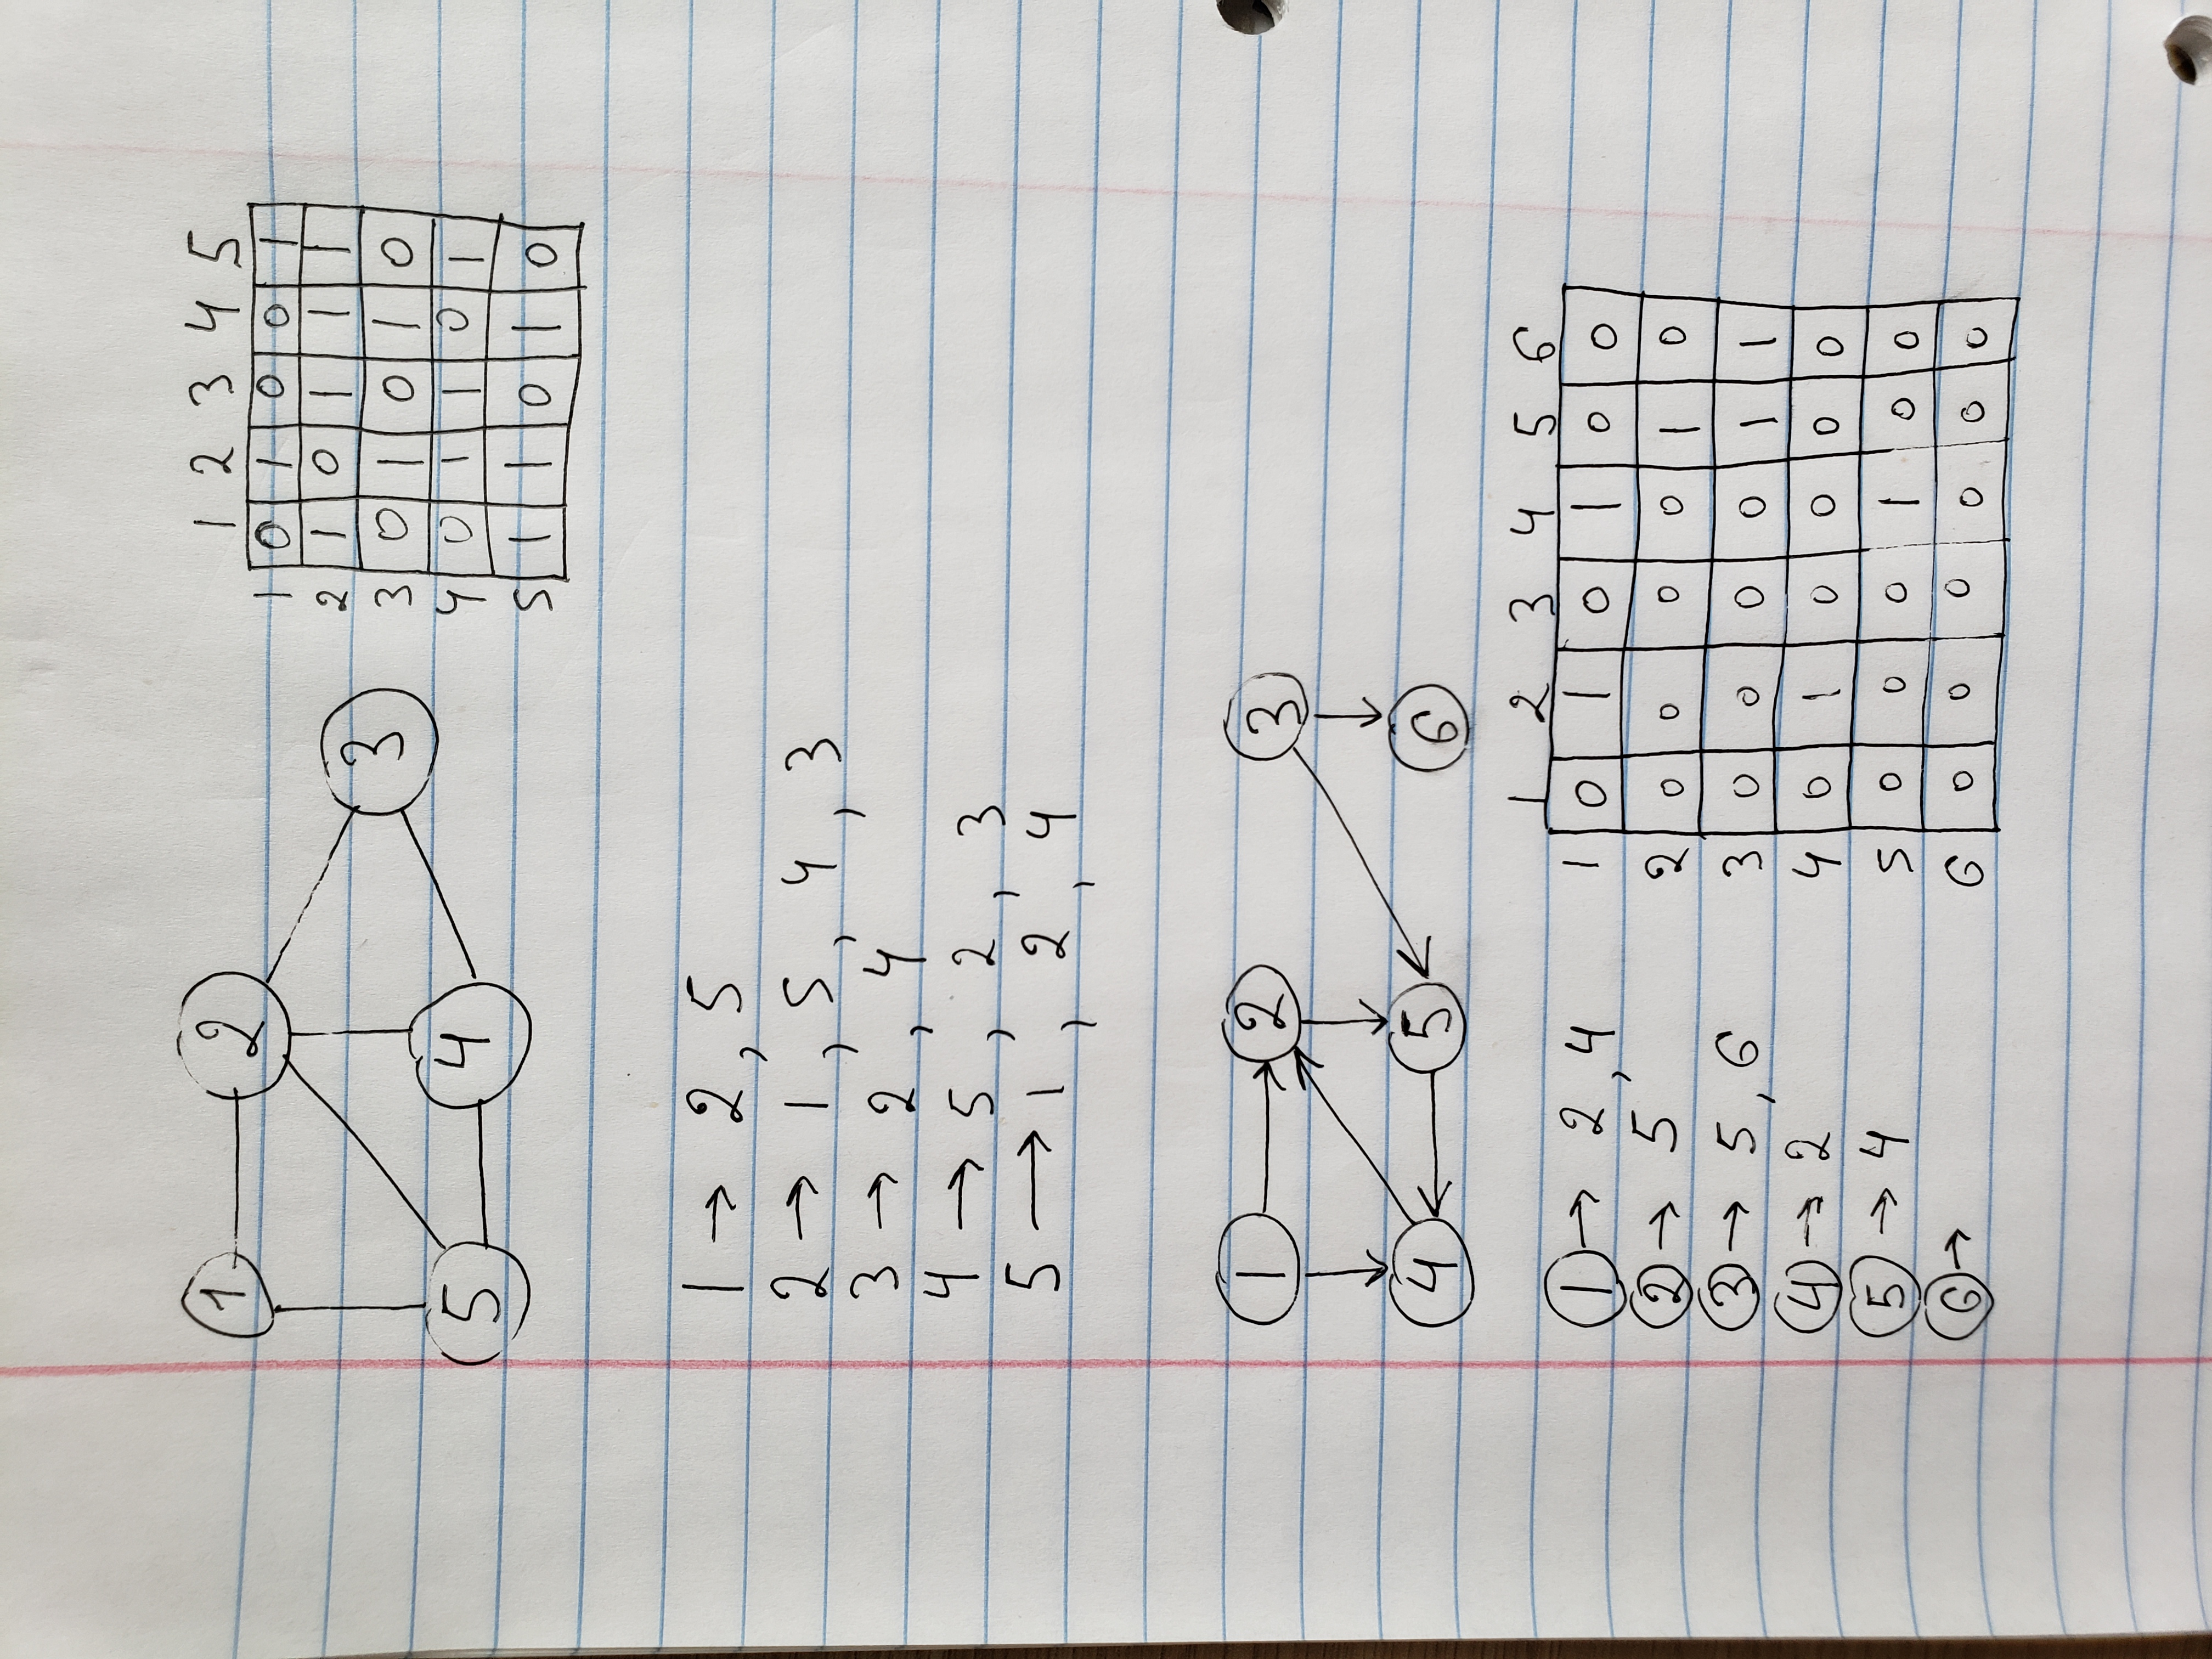 1 2
3
5 4
1 2 3 4 5
1 0 1 0 0 1
2 1 0 1 1 1
3 0 1 0 1 0
4 0 1 1 0 1
5 1 1 0 1 0
1 → 2, 5
2 → 1, 5, 4, 3
3 → 2, 4
4 → 5, 2, 3
5 → 1, 2, 4
1 2 3
4 5 6
1 → 2, 4
2 → 5
3 → 5, 6
4 → 2
5 → 4
6 →
1 2 3 4 5 6
1 0 1 0 1 0 0
2 0 0 0 0 1 0
3 0 0 0 0 1 1
4 0 1 0 0 0 0
5 0 0 0 1 0 0
6 0 0 0 0 0 0